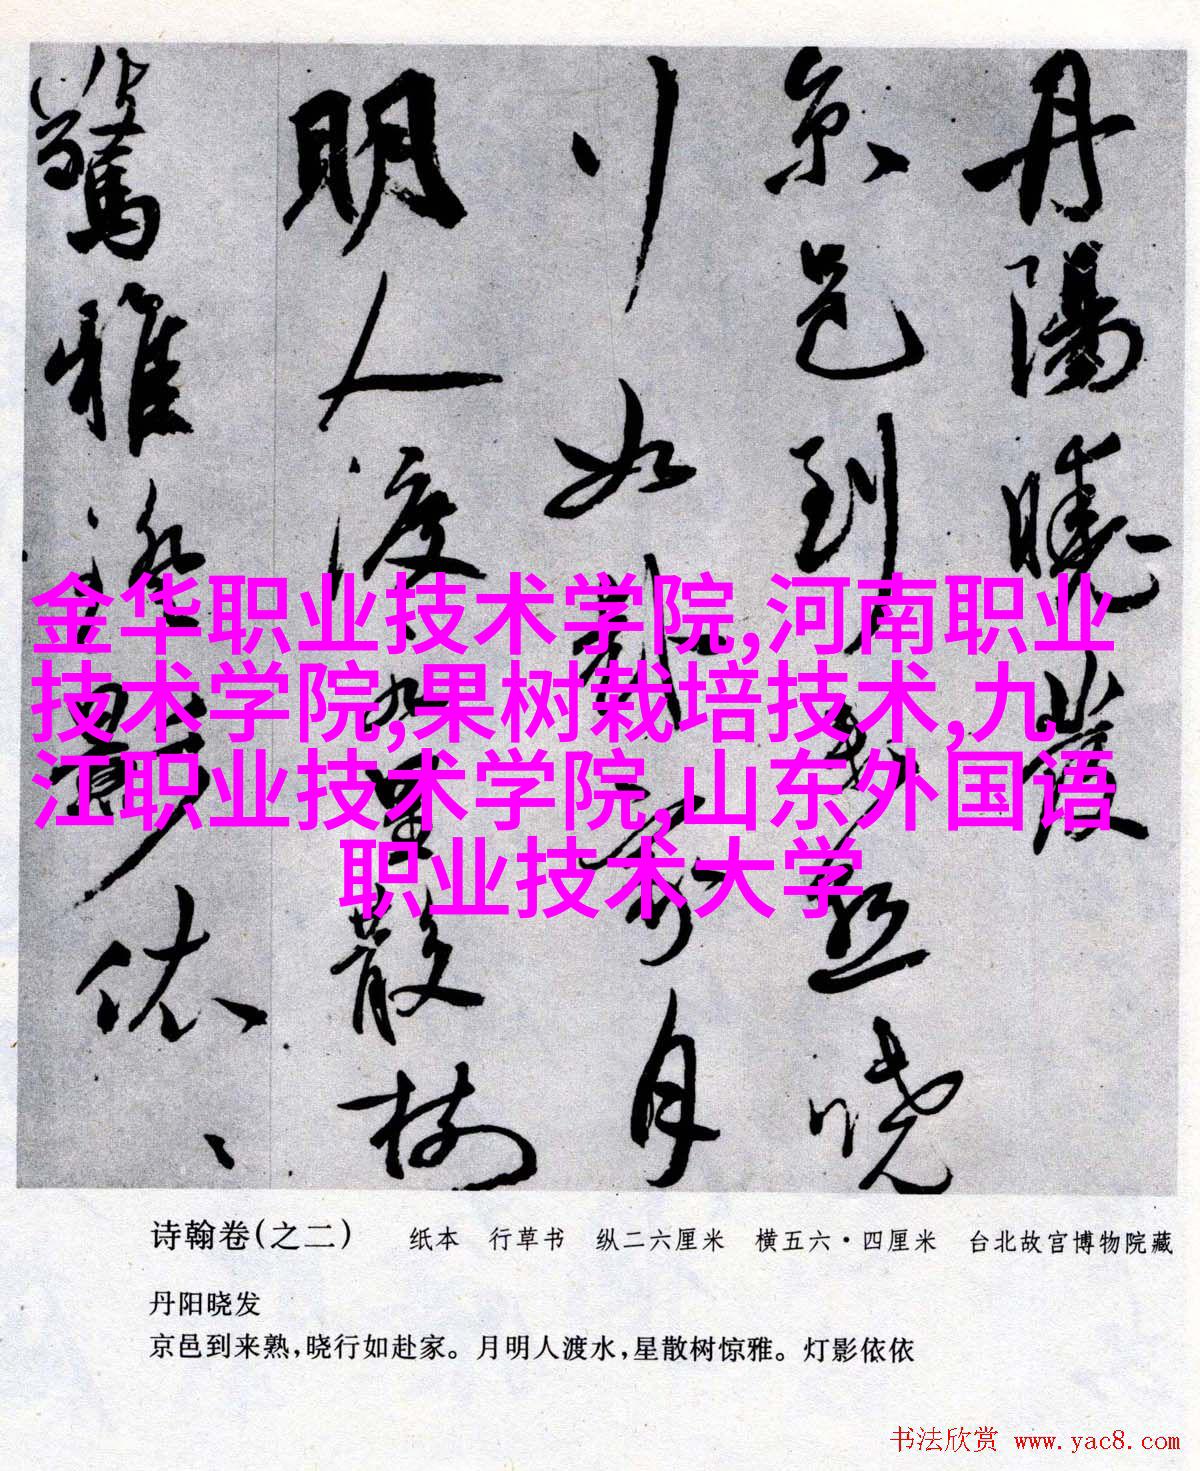 丹陽曉發
京邑到来熟曉
行如赴家月
明人渡水星散樹
驚雅灯影依、
金华职业技术学院,河南职业
技术学院,果树栽培技术,九
江职业技术学院,山东外国语
职业技术大学
诗翰卷(之二) 纸本 行草书 纵二六厘米 横五六·四厘米 台北故宫博物院藏
丹阳晓发
京邑到来熟,晓行如赴家。月明人渡水,星散树惊雅。灯影依依
书法欣赏 www.yac8.com